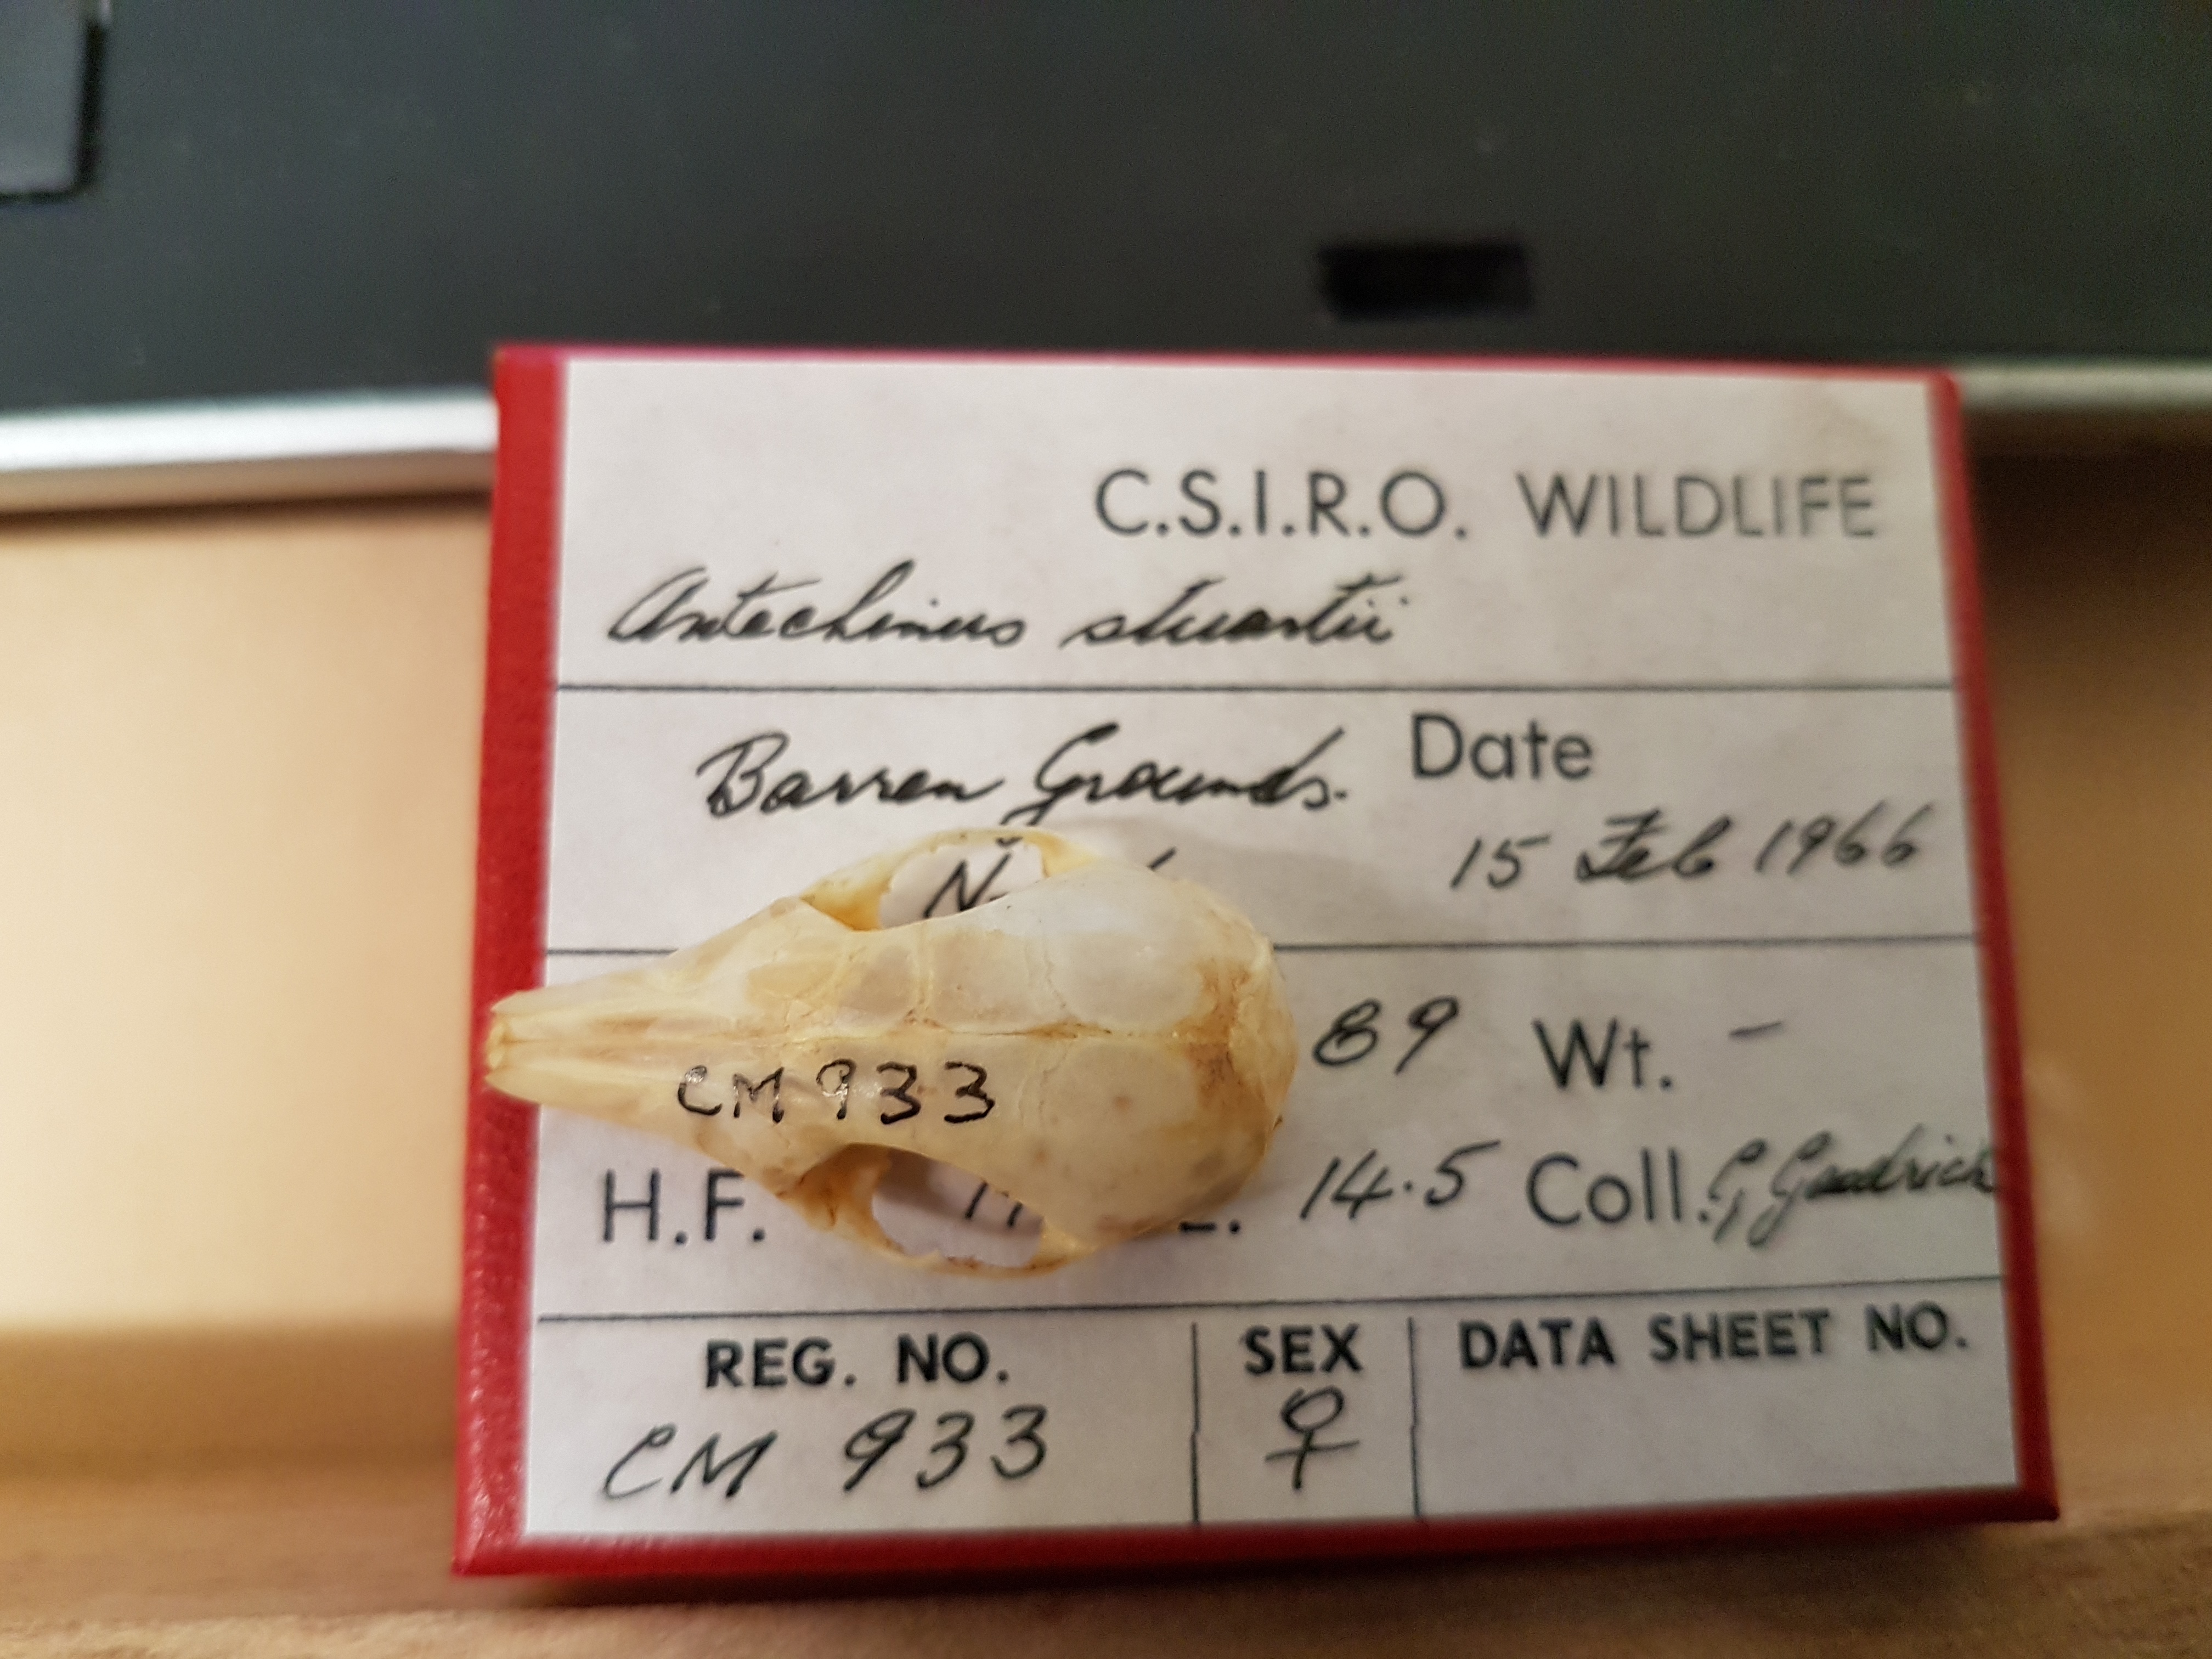 C.S.I.R.O. WILDLIFE
Antechinus stuartii
Barren Grounds. Date
N. 15 Feb 1966
89 Wt. -
H.F. 14.5 Coll.
REG. NO. SEX DATA SHEET NO.
CM 933 ♀
CM933